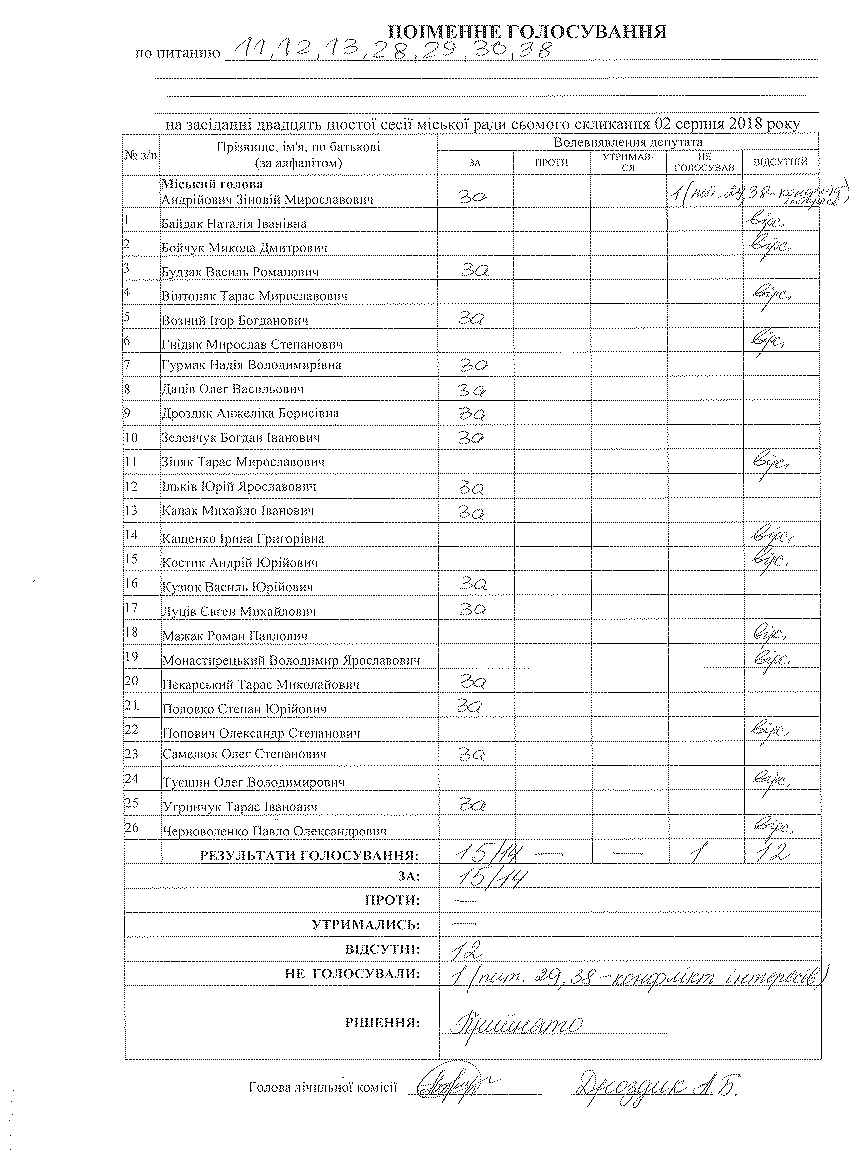 ПОІМЕННЕ ГОЛОСУВАННЯ
по питанню 11, 12, 13, 28, 29, 30, 38
на засіданні двадцять шостої сесії міської ради сьомого скликання 02 серпня 2018 року
№ з/п Прізвище, ім'я, по батькові (за алфавітом) Волевиявлення депутата
ЗА ПРОТИ УТРИМАВ-СЯ НЕ ГОЛОСУВАВ ВІДСУТНІЙ
Міський голова
Андрійович Зіновій Мирославович за 1 (пит. 29, 38 - конфлікт інтересів)
1 Байдак Наталія Іванівна відс.
2 Бойчук Микола Дмитрович відс.
3 Будзак Василь Романович за
4 Вінтоняк Тарас Мирославович відс.
5 Возний Ігор Богданович за
6 Гнідик Мирослав Степанович відс.
7 Гурмак Надія Володимирівна за
8 Даців Олег Васильович за
9 Дроздик Анжеліка Борисівна за
10 Зеленчук Богдан Іванович за
11 Зіняк Тарас Мирославович відс.
12 Ільків Юрій Ярославович за
13 Капак Михайло Іванович за
14 Кащенко Ірина Григорівна відс.
15 Костик Андрій Юрійович відс.
16 Кузюк Василь Юрійович за
17 Луців Євген Михайлович за
18 Мажак Роман Павлович відс.
19 Монастирецький Володимир Ярославович відс.
20 Пекарський Тарас Миколайович за
21 Половко Степан Юрійович за
22 Попович Олександр Степанович відс.
23 Самелюк Олег Степанович за
24 Туєшин Олег Володимирович відс.
25 Угринчук Тарас Іванович за
26 Черноволенко Павло Олександрович відс.
РЕЗУЛЬТАТИ ГОЛОСУВАННЯ: 15/14 — — 1 12
ЗА: 15/14
ПРОТИ: —
УТРИМАЛИСЬ: —
ВІДСУТНІ: 12
НЕ ГОЛОСУВАЛИ: 1 (пит. 29, 38 - конфлікт інтересів)
РІШЕННЯ: Прийнято
Голова лічильної комісії Дроздик А.Б.